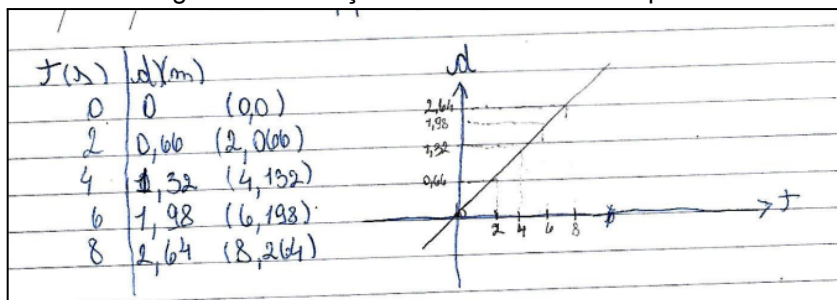 t(s) d(m)
0 0 (0,0)
2 0,66 (2,066)
4 1,32 (4,132)
6 1,98 (6,198)
8 2,64 (8,264)
d
2,64
1,98
1,32
0,66
2 4 6 8
t